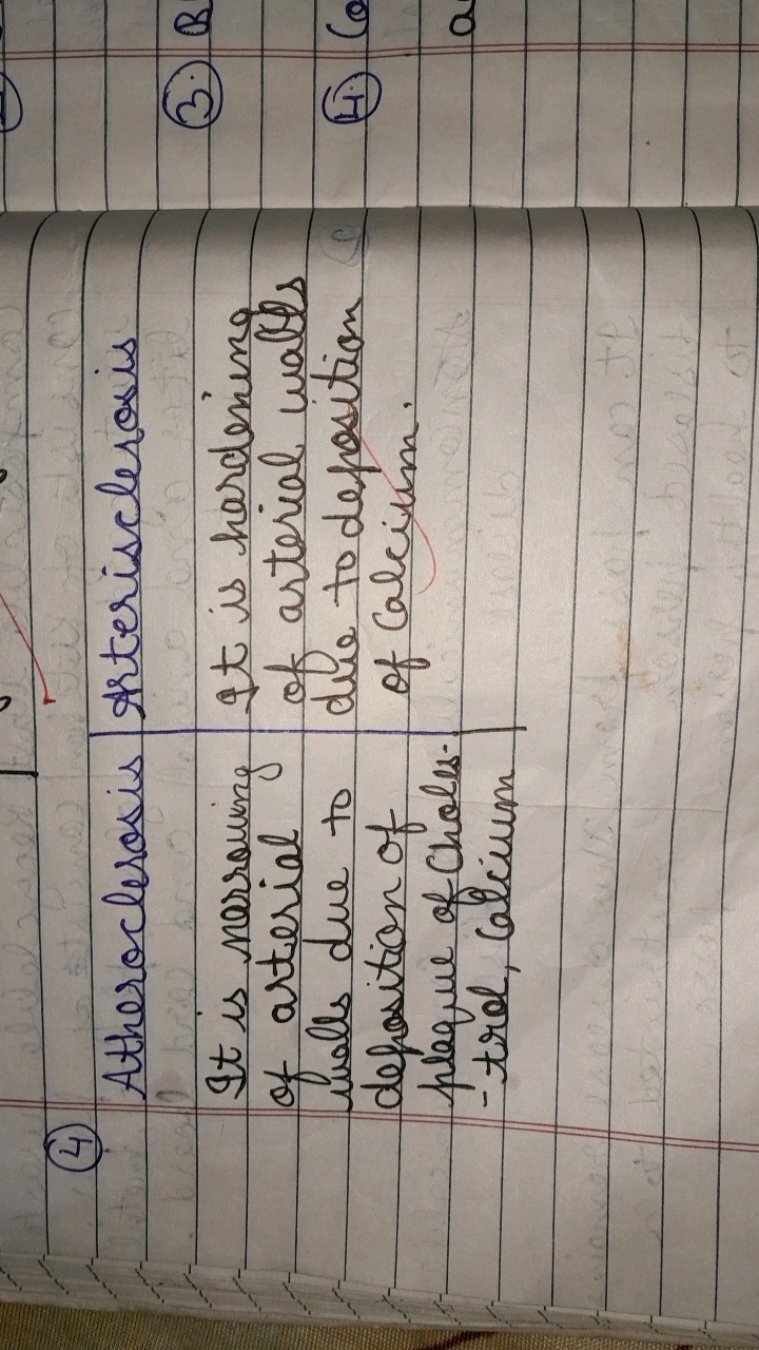 ④
Atherosclerosis | Arterisclerosis
It is narrowing | It is hardening
of arterial | of arterial walls
walls due to | due to deposition
deposition of | of Calcium.
plaque of Choles-
-trol, Calcium
③. B
④. Co
a